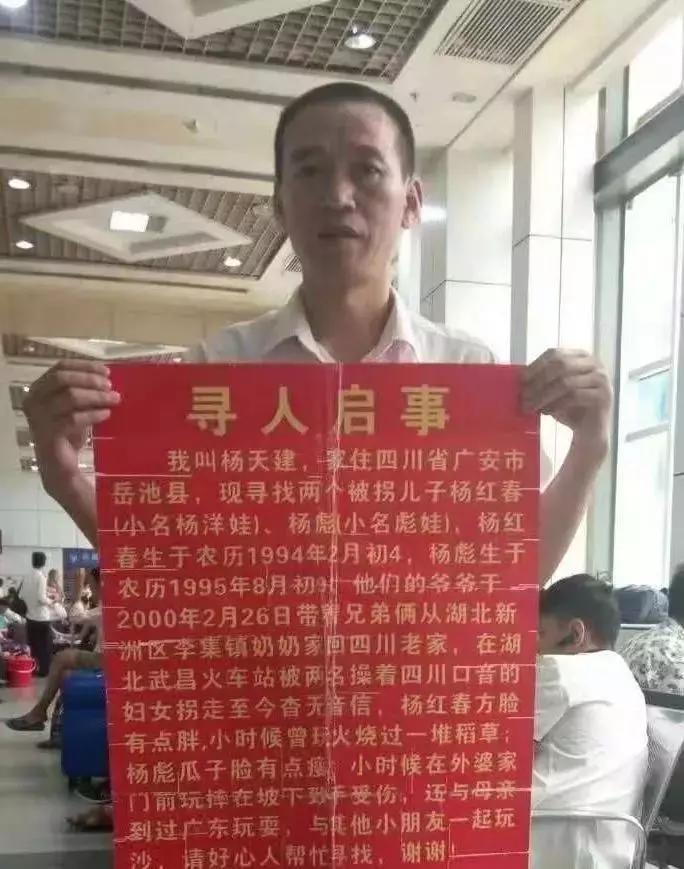 寻人启事
我叫杨天建，家住四川省广安市
岳池县，现寻找两个被拐儿子杨红春
(小名杨洋娃)、杨彪(小名彪娃)，杨红
春生于农历1994年2月初4，杨彪生于
农历1995年8月初9 他们的爷爷于
2000年2月26日带着兄弟俩从湖北新
洲区李集镇奶奶家回四川老家，在湖
北武昌火车站被两名操着四川口音的
妇女拐走至今杳无音信，杨红春方脸
有点胖,小时候曾玩火烧过一堆稻草；
杨彪瓜子脸有点瘦，小时候在外婆家
门前玩摔在坡下致手受伤，还与母亲
到过广东玩耍，与其他小朋友一起玩
沙，请好心人帮忙寻找，谢谢！